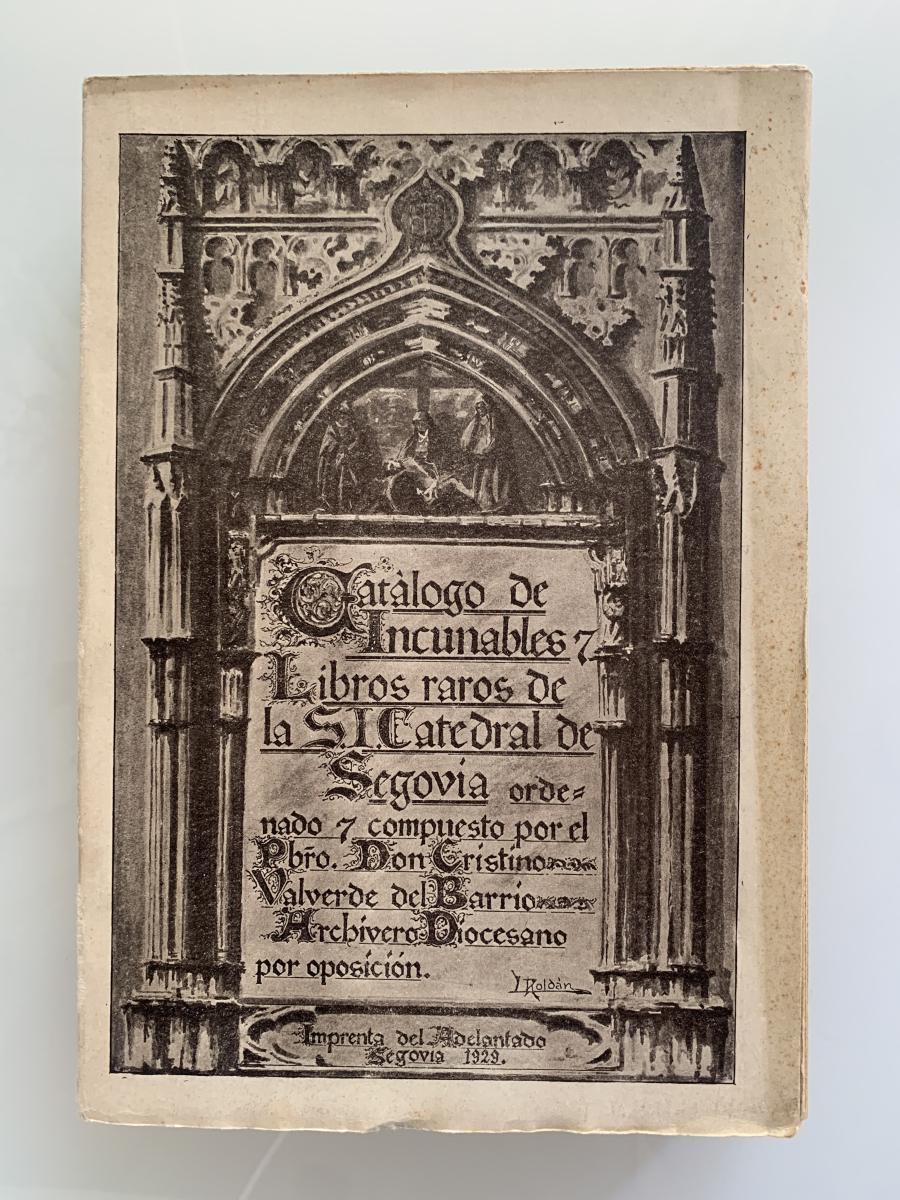 Catàlogo de
Incunables 7
Libros raros de
la S.I. Catedral de
Segovia orde=
nado 7 compuesto por el
Pbr̃o. Don Cristino
Valverde del Barrio
Archivero Diocesano
por oposición.
Roldàn
Imprenta del Adelantado
Segovia 1929.